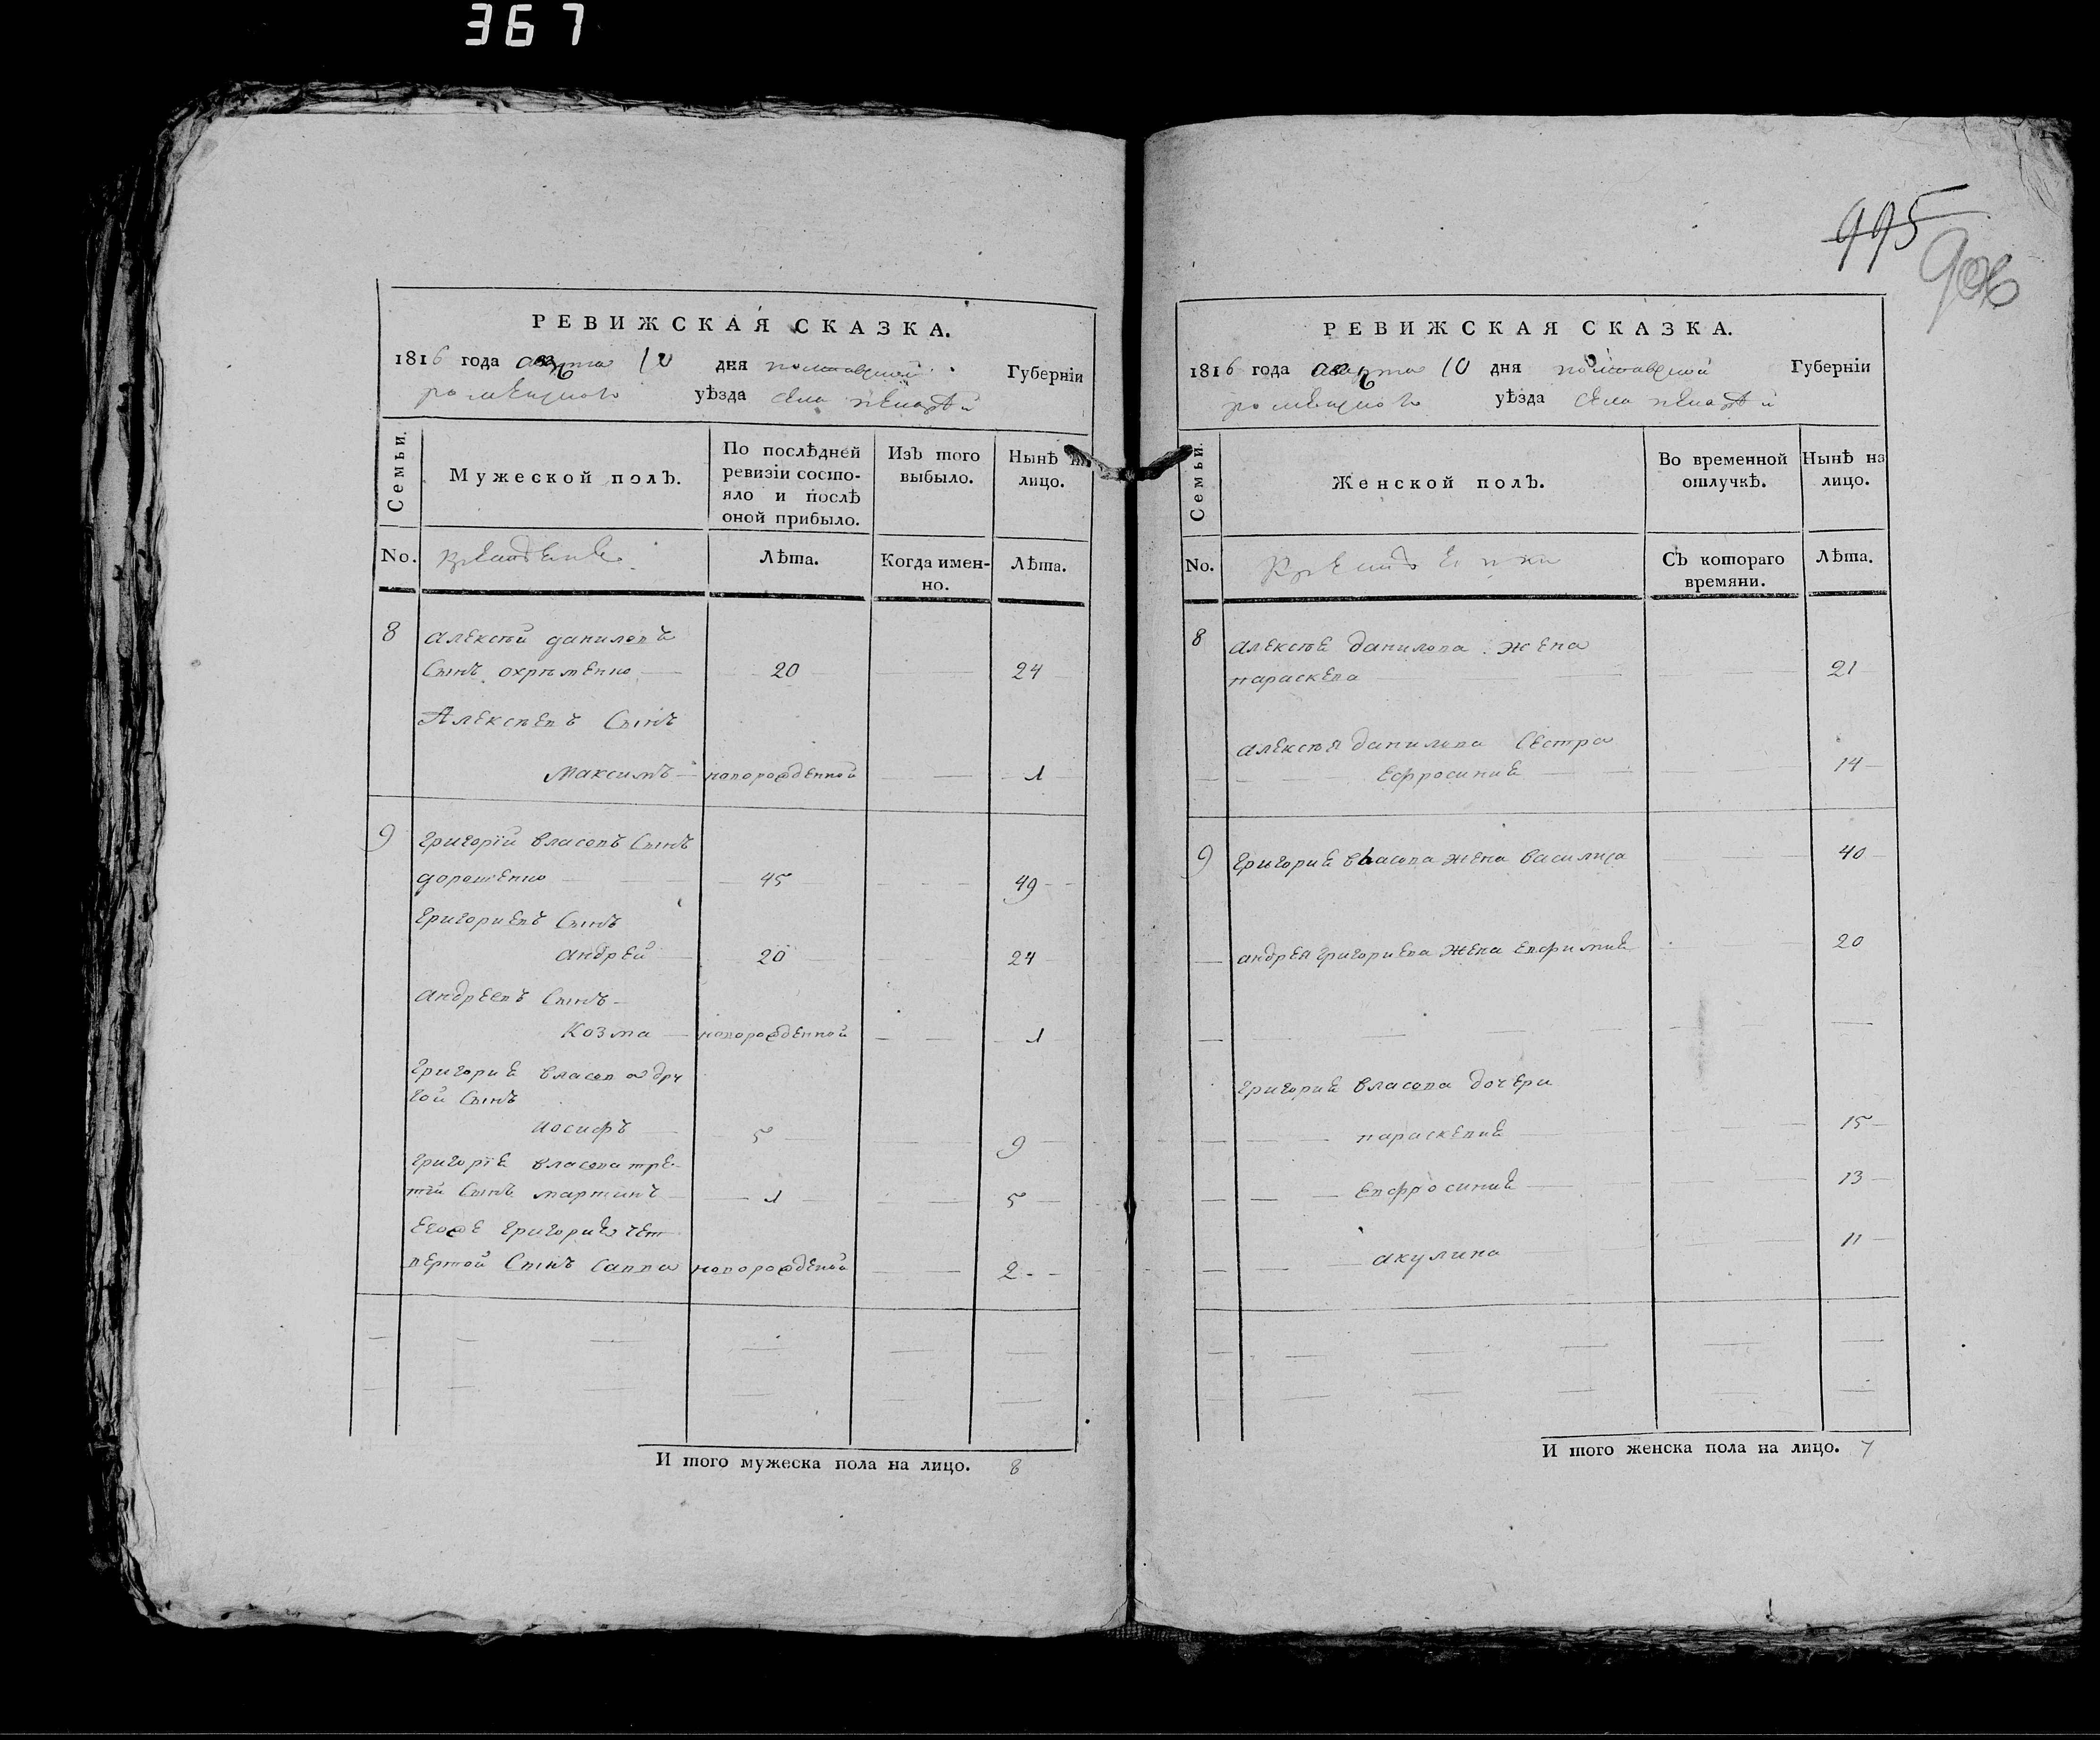 367
995
906
РЕВИЖСКАЯ СКАЗКА.
1816 года марта 10 дня полтавской Губернїи
роменского уѣзда села
Семьи.
Мужеской полъ.
По послѣдней ревизїи состо-
яло и послѣ оной прибыло.
Изъ того выбыло.
Нынѣ на лицо.
No.
Лѣта.
Когда имен-
но.
Лѣта.
8 алексѣй даниловъ
Сынъ охрѣменко 20 24
Алексѣевъ Сынъ
Максимъ новорожденной 1
9 григорїй власовъ Сынъ
дорошенко 45 49
григориевъ Сынъ
андрей 20 24
андреевъ Сынъ
Козма новорожденной 1
григорие власова дру
гой Сынъ
иосифъ 5 9
григорїе власова тре-
тїй Сынъ мартинъ 1 5
егоже григорие чет
вертой Сынъ Савва новорожденой 2
И того мужеска пола на лицо. 8
РЕВИЖСКАЯ СКАЗКА.
1816 года марта 10 дня полтавской Губернїи
роменского уѣзда села
Семьи.
Женской полъ.
Во временной отлучкѣ.
Нынѣ на лицо.
No.
Съ котораго времяни.
Лѣта.
8 алексѣе данилова жена
параскева 21
алексѣя данилова Сестра
ефросиние 14
9 григорие власова жена василиса 40
андрея григориева жена евфимие 20
григорие власова дочери
параскевие 15
евфросиние 13
акулина 11
И того женска пола на лицо. 7